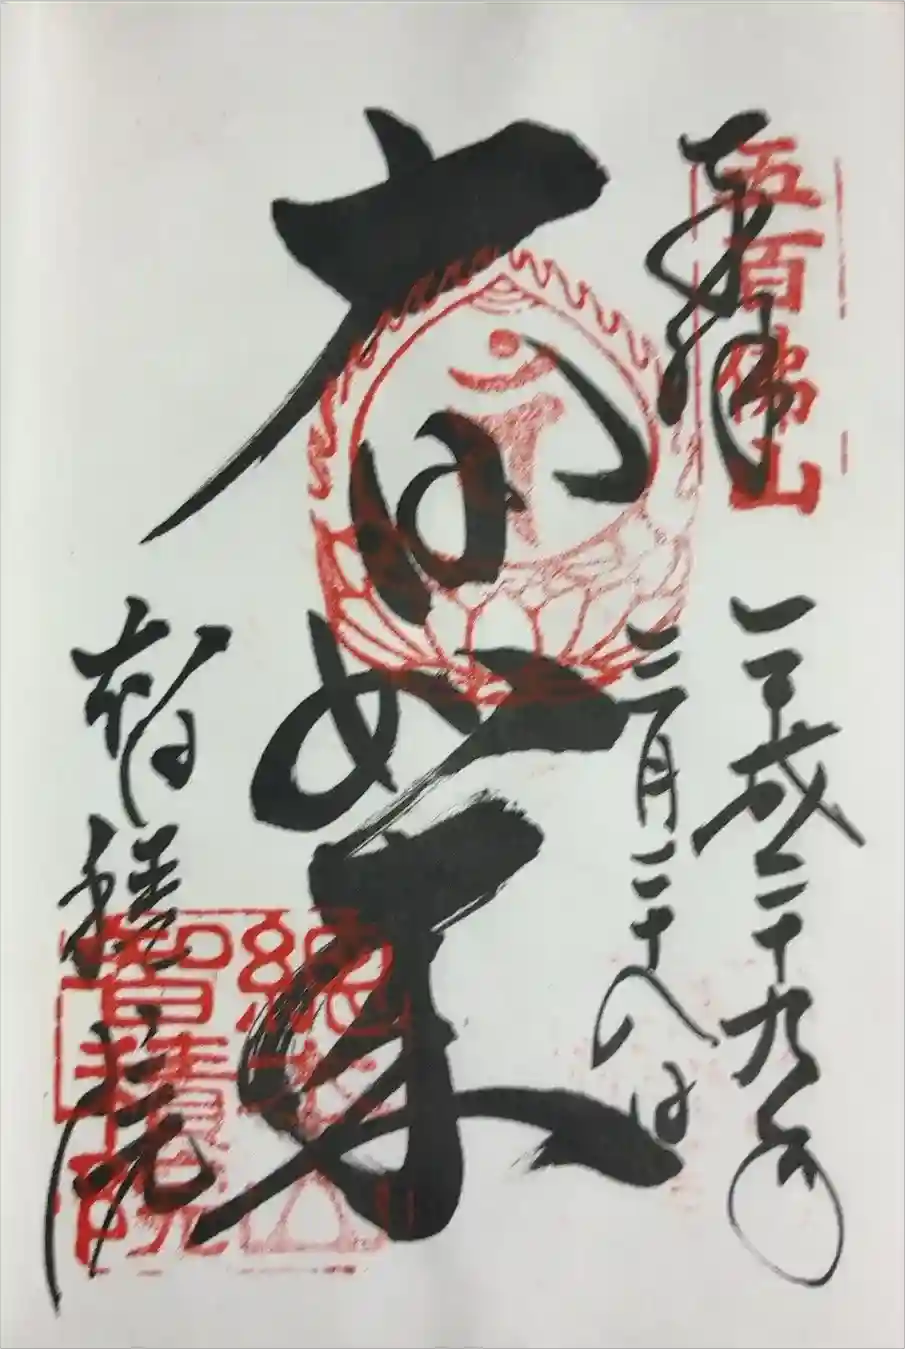 奉拝
五百佛山
平成二十九年
三月二十八日
大日如来
智積院
總本山
智積院